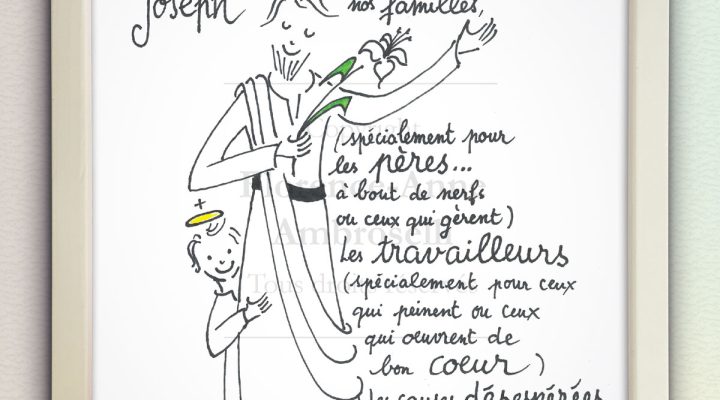 Joseph
nos familles,
(spécialement pour
les pères...
à bout de nerfs
ou ceux qui gèrent)
Les travailleurs
(spécialement pour ceux
qui peinent ou ceux
qui œuvrent de
bon coeur)
Les causes désespérées
Copyright
Florence-Anne
Ambroselli
Tous droits réservés